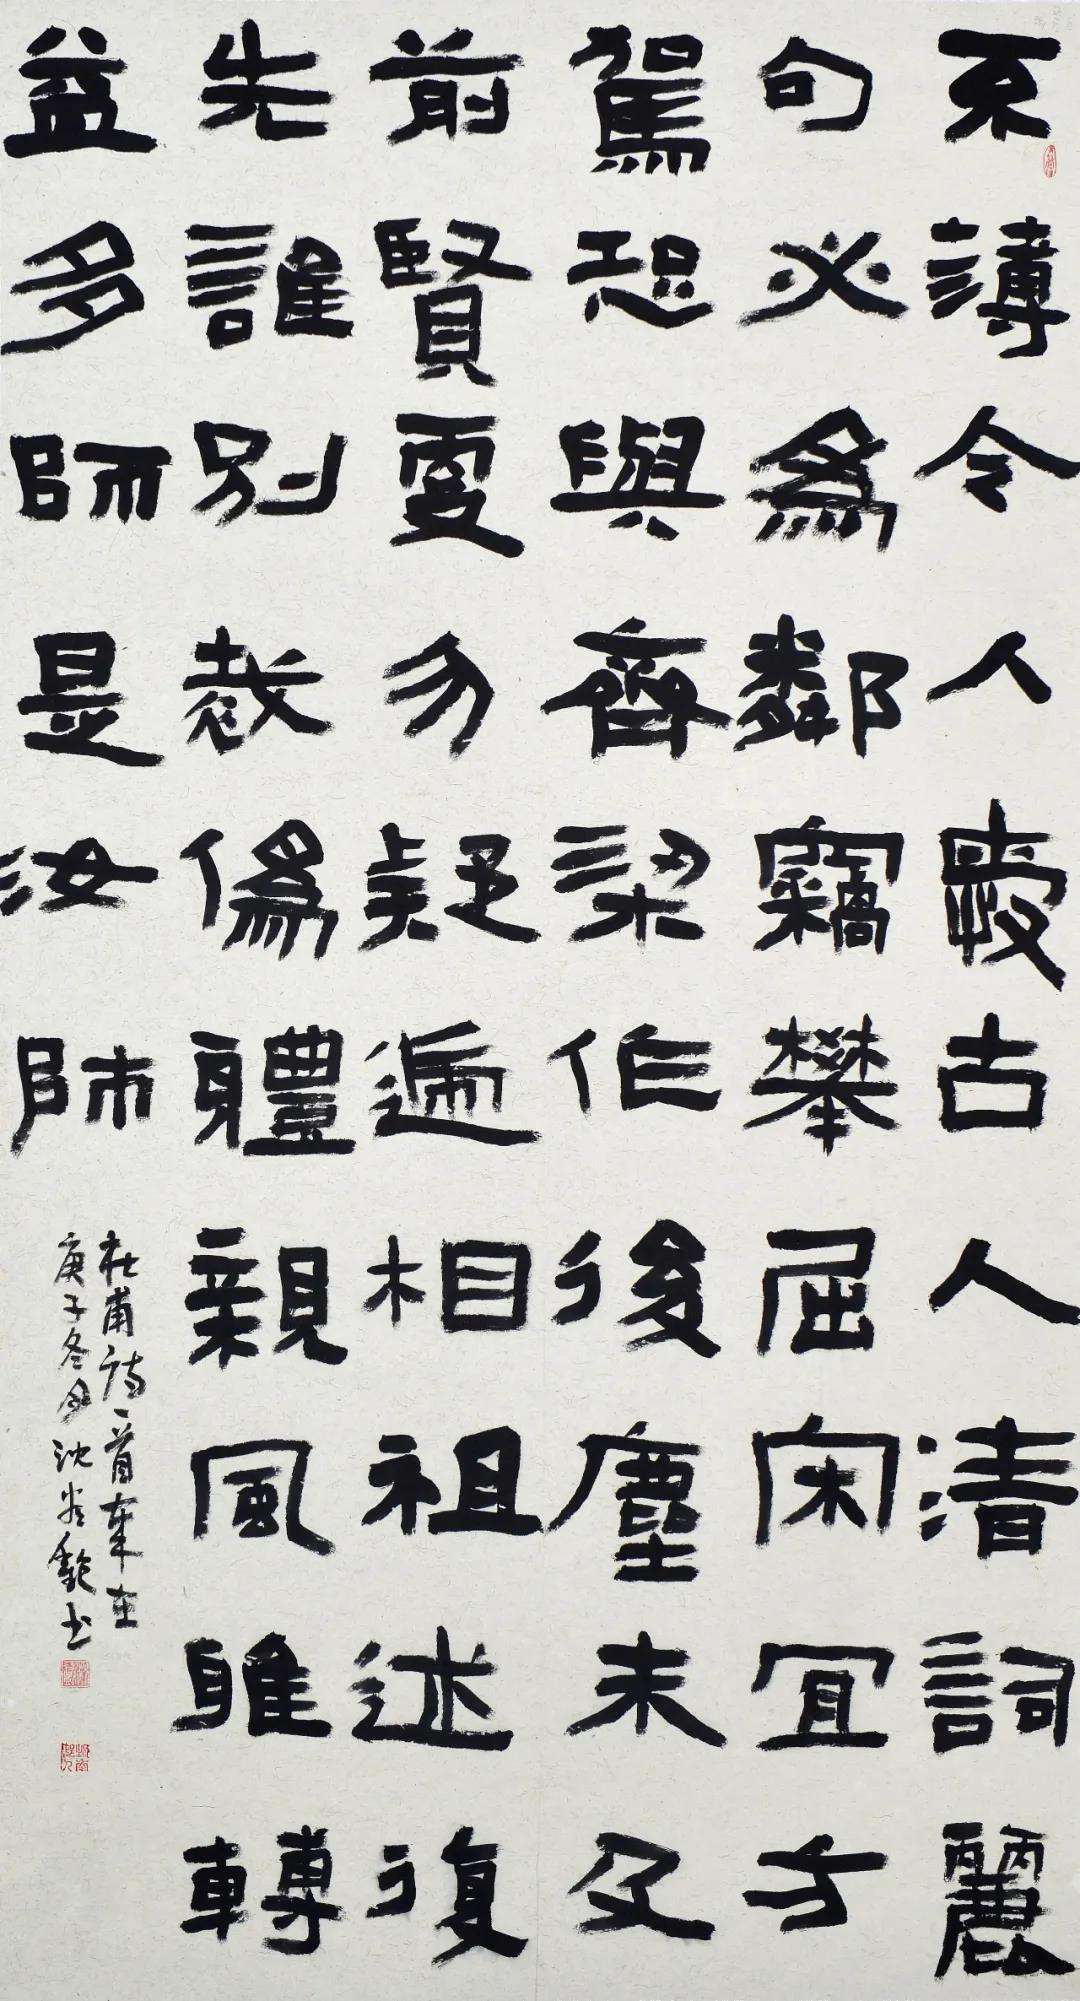 不薄今人愛古人清詞麗
句必爲鄰竊攀屈宋宜方
駕恐與齊梁作後塵未及
前賢更勿疑遞相祖述復
先誰別裁僞體親風雅轉
益多師是汝師
杜甫詩一首
庚子冬月沈 書